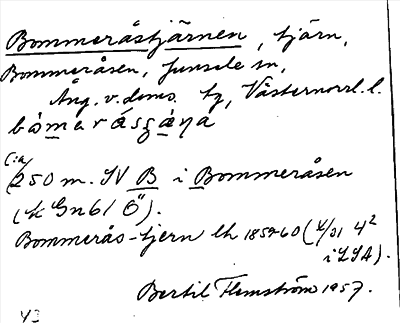 Bommeråstjärnen, tjärn,
Bommeråsen, Junsele sn,
Ång. v. doms. tg, Västernorrl. l.
C:a
250 m. SV B i Bommeråsen
(k Gnb1 Ö).
Bommerås-tjern lh 1859-60 (4/31 4²
i LSA).
Bertil Flemström 1957.
43